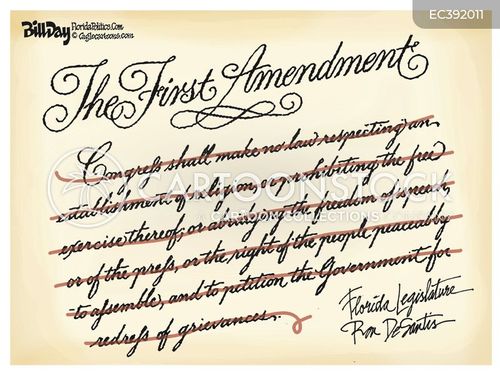 EC392011
BillDay FloridaPolitics.Com
© Caglecartoons.com
The First Amendment
Congress shall make no law respecting an
establishment of religion, or prohibiting the free
exercise thereof; or abridging the freedom of speech,
or of the press, or the right of the people peaceably
to assemble, and to petition the Government for
redress of grievances.
CARTOONSTOCK
CARTOON COLLECTIONS
Florida Legislature
Ron DeSantis